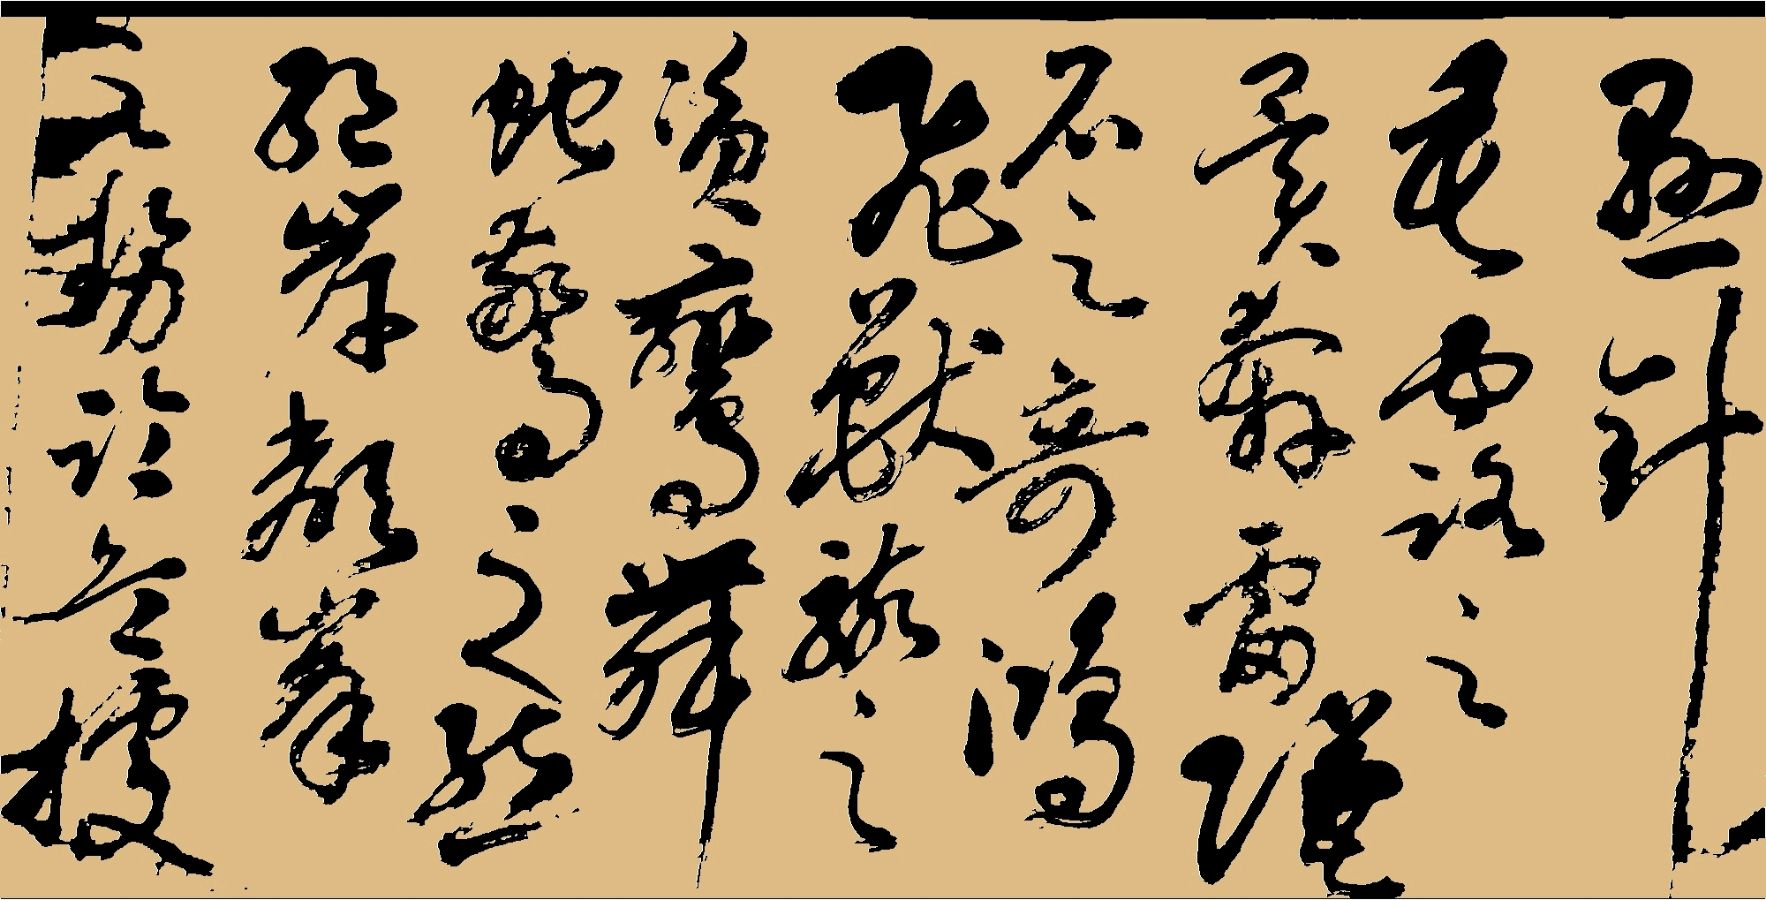 懸針
垂露之
異奔雷墜
石之奇鴻
飛獸駭之
資鸞舞
蛇驚之態
絕岸頹峯
之勢臨危據